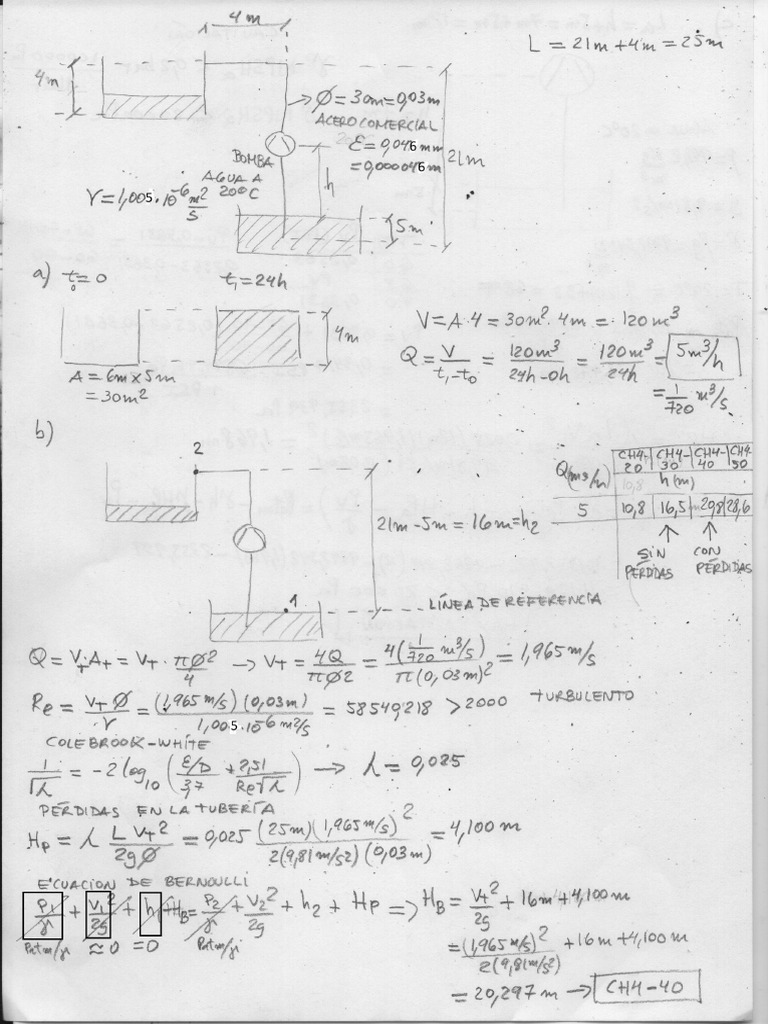 4m
L = 21m + 4m = 25m
4m
Ø = 30m = 0,03m
ACERO COMERCIAL
ε = 0,046 mm
= 0,000046 m
21m
BOMBA
h
AGUA A
20°C
γ = 1,005·10⁻⁶ m²/s
5m
a) t₀ = 0
t₁ = 24h
4m
V = A·4 = 30m²·4m = 120m³
Q = V/(t₁-t₀) = 120m³/(24h-0h) = 120m³/24h = 5m³/h
= 1/720 m³/s
A = 6m x 5m
= 30m²
b)
2
Q(m³/h) CH4-20 CH4-30 CH4-40 CH4-50
h(m)
5 10,8 16,5 20,8 28,6
21m - 5m = 16m = h₂
SIN PÉRDIDAS
CON PÉRDIDAS
1
LÍNEA DE REFERENCIA
Q = V_T·A_T = V_T · πØ²/4 → V_T = 4Q/πØ2 = 4(1/720 m³/s)/π(0,03m)² = 1,965 m/s
Re = V_T Ø/γ = (1,965 m/s)(0,03m)/1,005·10⁻⁶ m²/s = 58549,218 > 2000 TURBULENTO
COLEBROOK-WHITE
1/√λ = -2 log₁₀ ((ε/D)/3,7 + 2,51/(Re√λ)) → λ = 0,025
PÉRDIDAS EN LA TUBERÍA
Hp = λ L V_T²/2gØ = 0,025 (25m)(1,965 m/s)²/2(9,81 m/s2)(0,03m) = 4,100 m
ECUACION DE BERNOULLI
P₁/γ + V₁²/2g + h₁ + H_B = P₂/γ + V₂²/2g + h₂ + Hp ⇒ H_B = V_T²/2g + 16m + 4,100 m
Patm/γ ≈0 =0 Patm/γ
= (1,965 m/s)²/2(9,81 m/s²) + 16m + 4,100 m
= 20,297 m → CH4-40